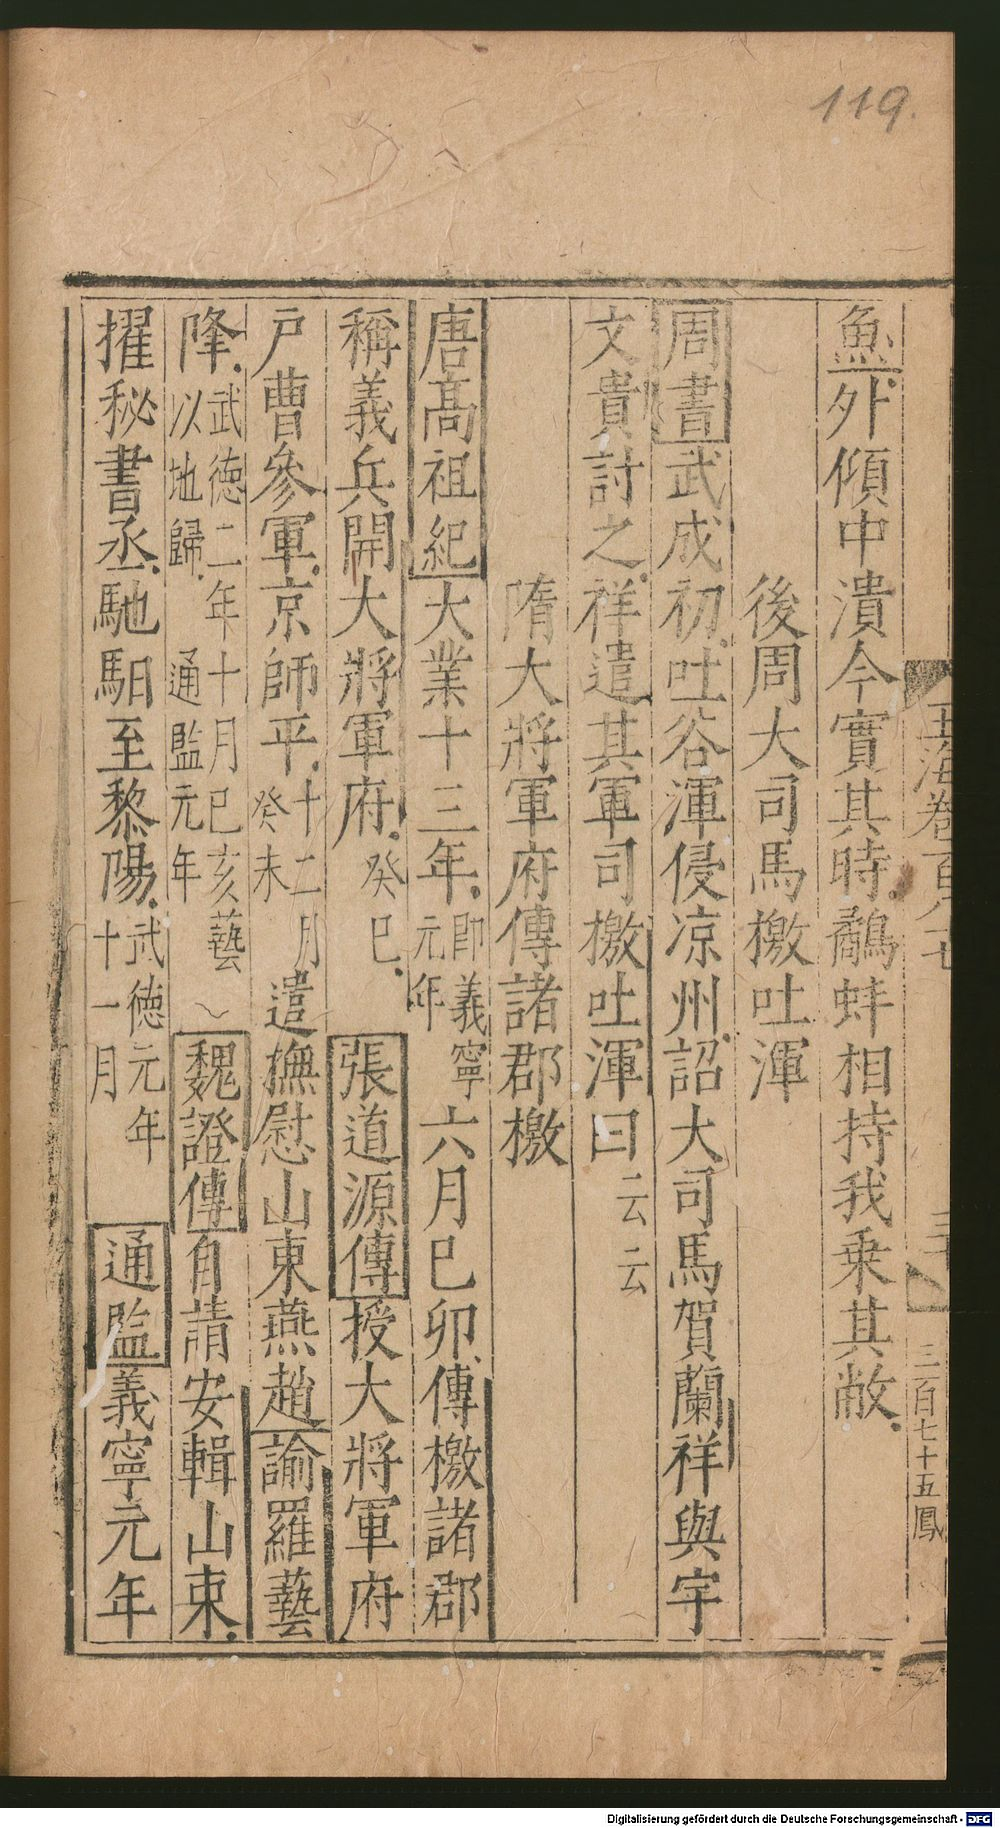 119.
魚外傾中潰今實其時鷸蚌相持我乗其敝
後周大司馬檄吐渾
周書武成初吐谷渾侵凉州詔大司馬賀蘭祥與宇
文貴討之祥遣其軍司檄吐渾曰云云
隋大將軍府傳諸郡檄
唐髙祖紀大業十三年即義寧元年六月巳卯傳檄諸郡
稱義兵開大將軍府癸巳張道源傳授大將軍府
戸曹參軍京師平十二月癸未遣撫慰山東燕趙諭羅藝
降武德二年十月巳亥藝以地歸通監元年魏證傳自請安輯山東
擢秘書丞馳馹至黎陽武德元年十一月通監義寧元年
玉海卷百八十七
三百七十五鳳
Digitalisierung gefördert durch die Deutsche Forschungsgemeinschaft - DFG